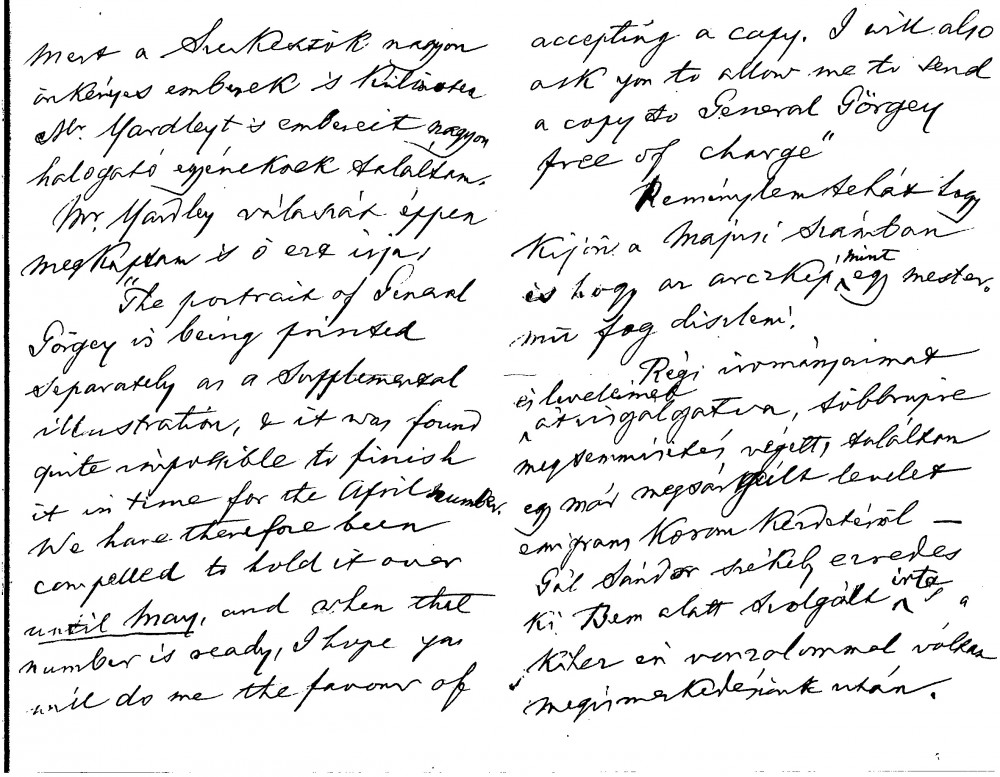 mert a Szerkesztők nagyon
önkényes emberek is különösen
Mr. Yardleyt is embereit nagyon
halogató egyéneknek találtam.
Mr. Yardley válaszát éppen
megkaptam is ő ezt irja,
"The portrait of General
Görgey is being printed
separately as a Supplemental
illustration, & it was found
quite impossible to finish
it in time for the April number.
We have therefore been
compelled to hold it over
until May, and when that
number is ready, I hope you
will do me the favour of
accepting a copy. I will also
ask you to allow me to send
a copy to General Görgey
free of charge"
Reménylem tehát hogy
kijön a Majusi számban
is hogy az arczkép, mint egy mester-
mű fog diszleni.
Régi irományaimat
és leveleimet
átvizsgálgatva, többnyire
megsemmisités végett, találtam
egy már megsárgult levelet
emigrans korom kezdetéről —
Gál Sándor székely ezredes
ki Bem alatt szolgált irta s a
kihez én vonzalommal vóltam
megismerkedésünk után.